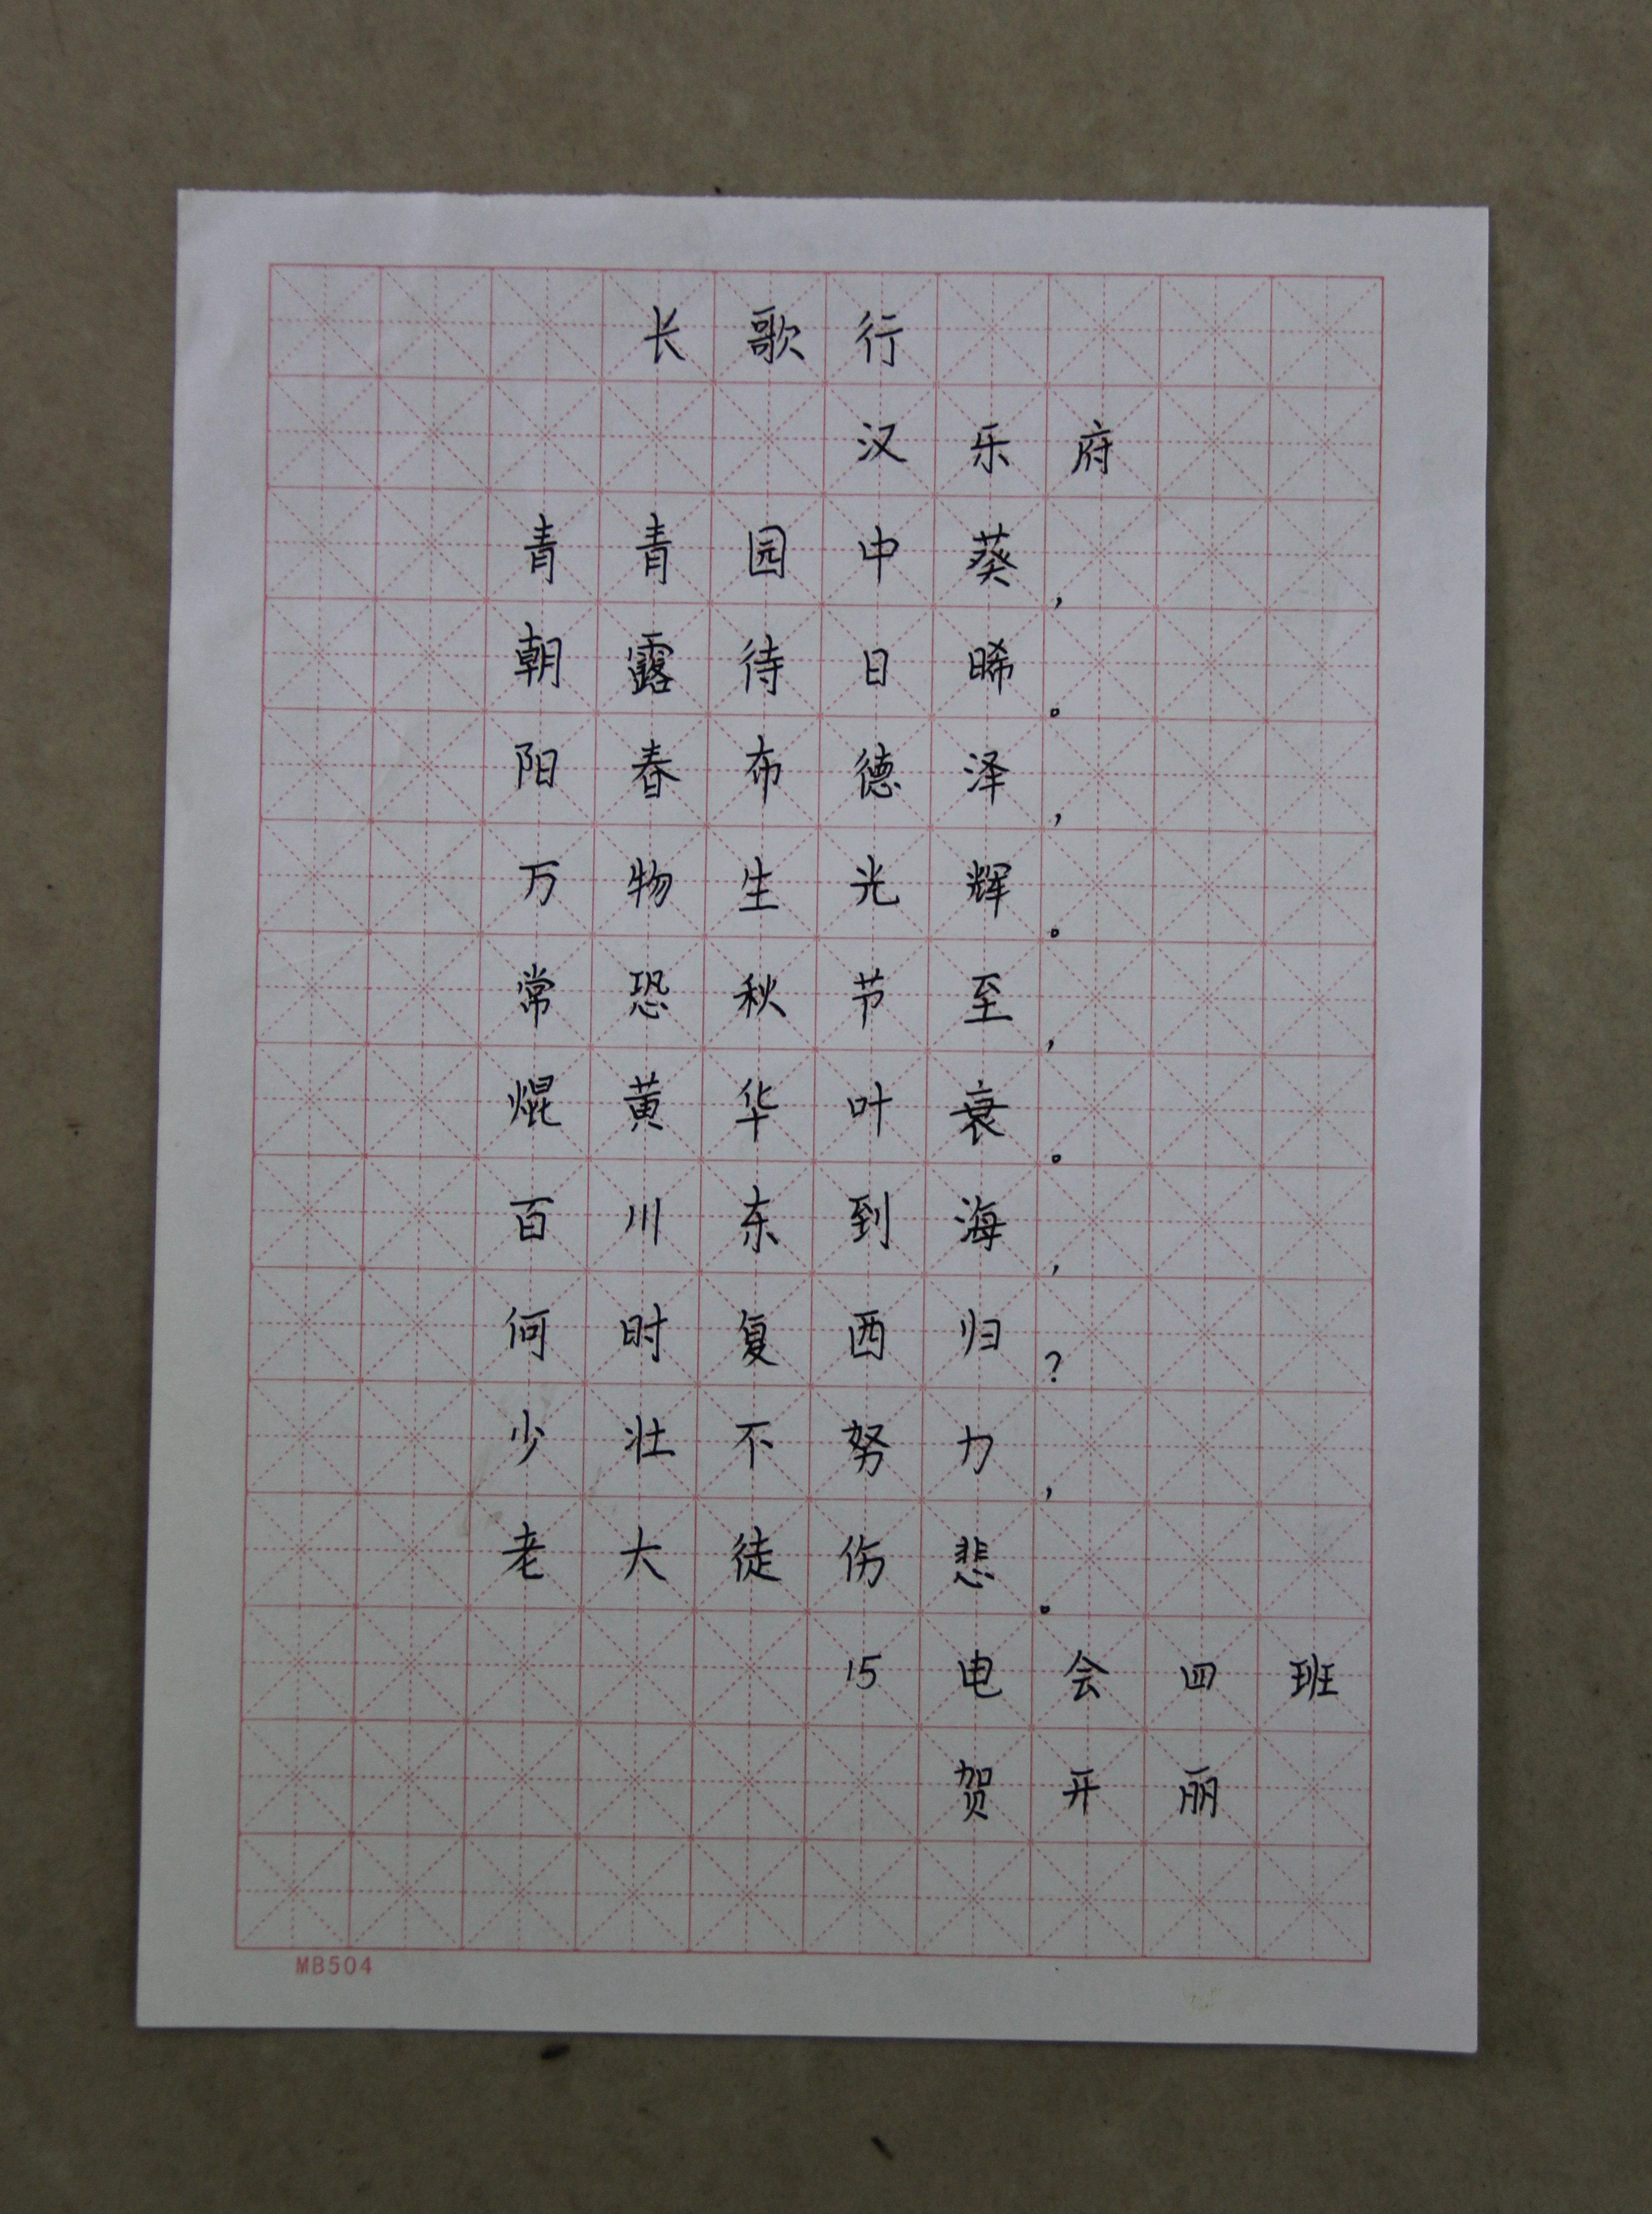 长歌行
汉乐府
青青园中葵，
朝露待日晞。
阳春布德泽，
万物生光辉。
常恐秋节至，
焜黄华叶衰。
百川东到海，
何时复西归？
少壮不努力，
老大徒伤悲。
15电会四班
贺开丽
MB504